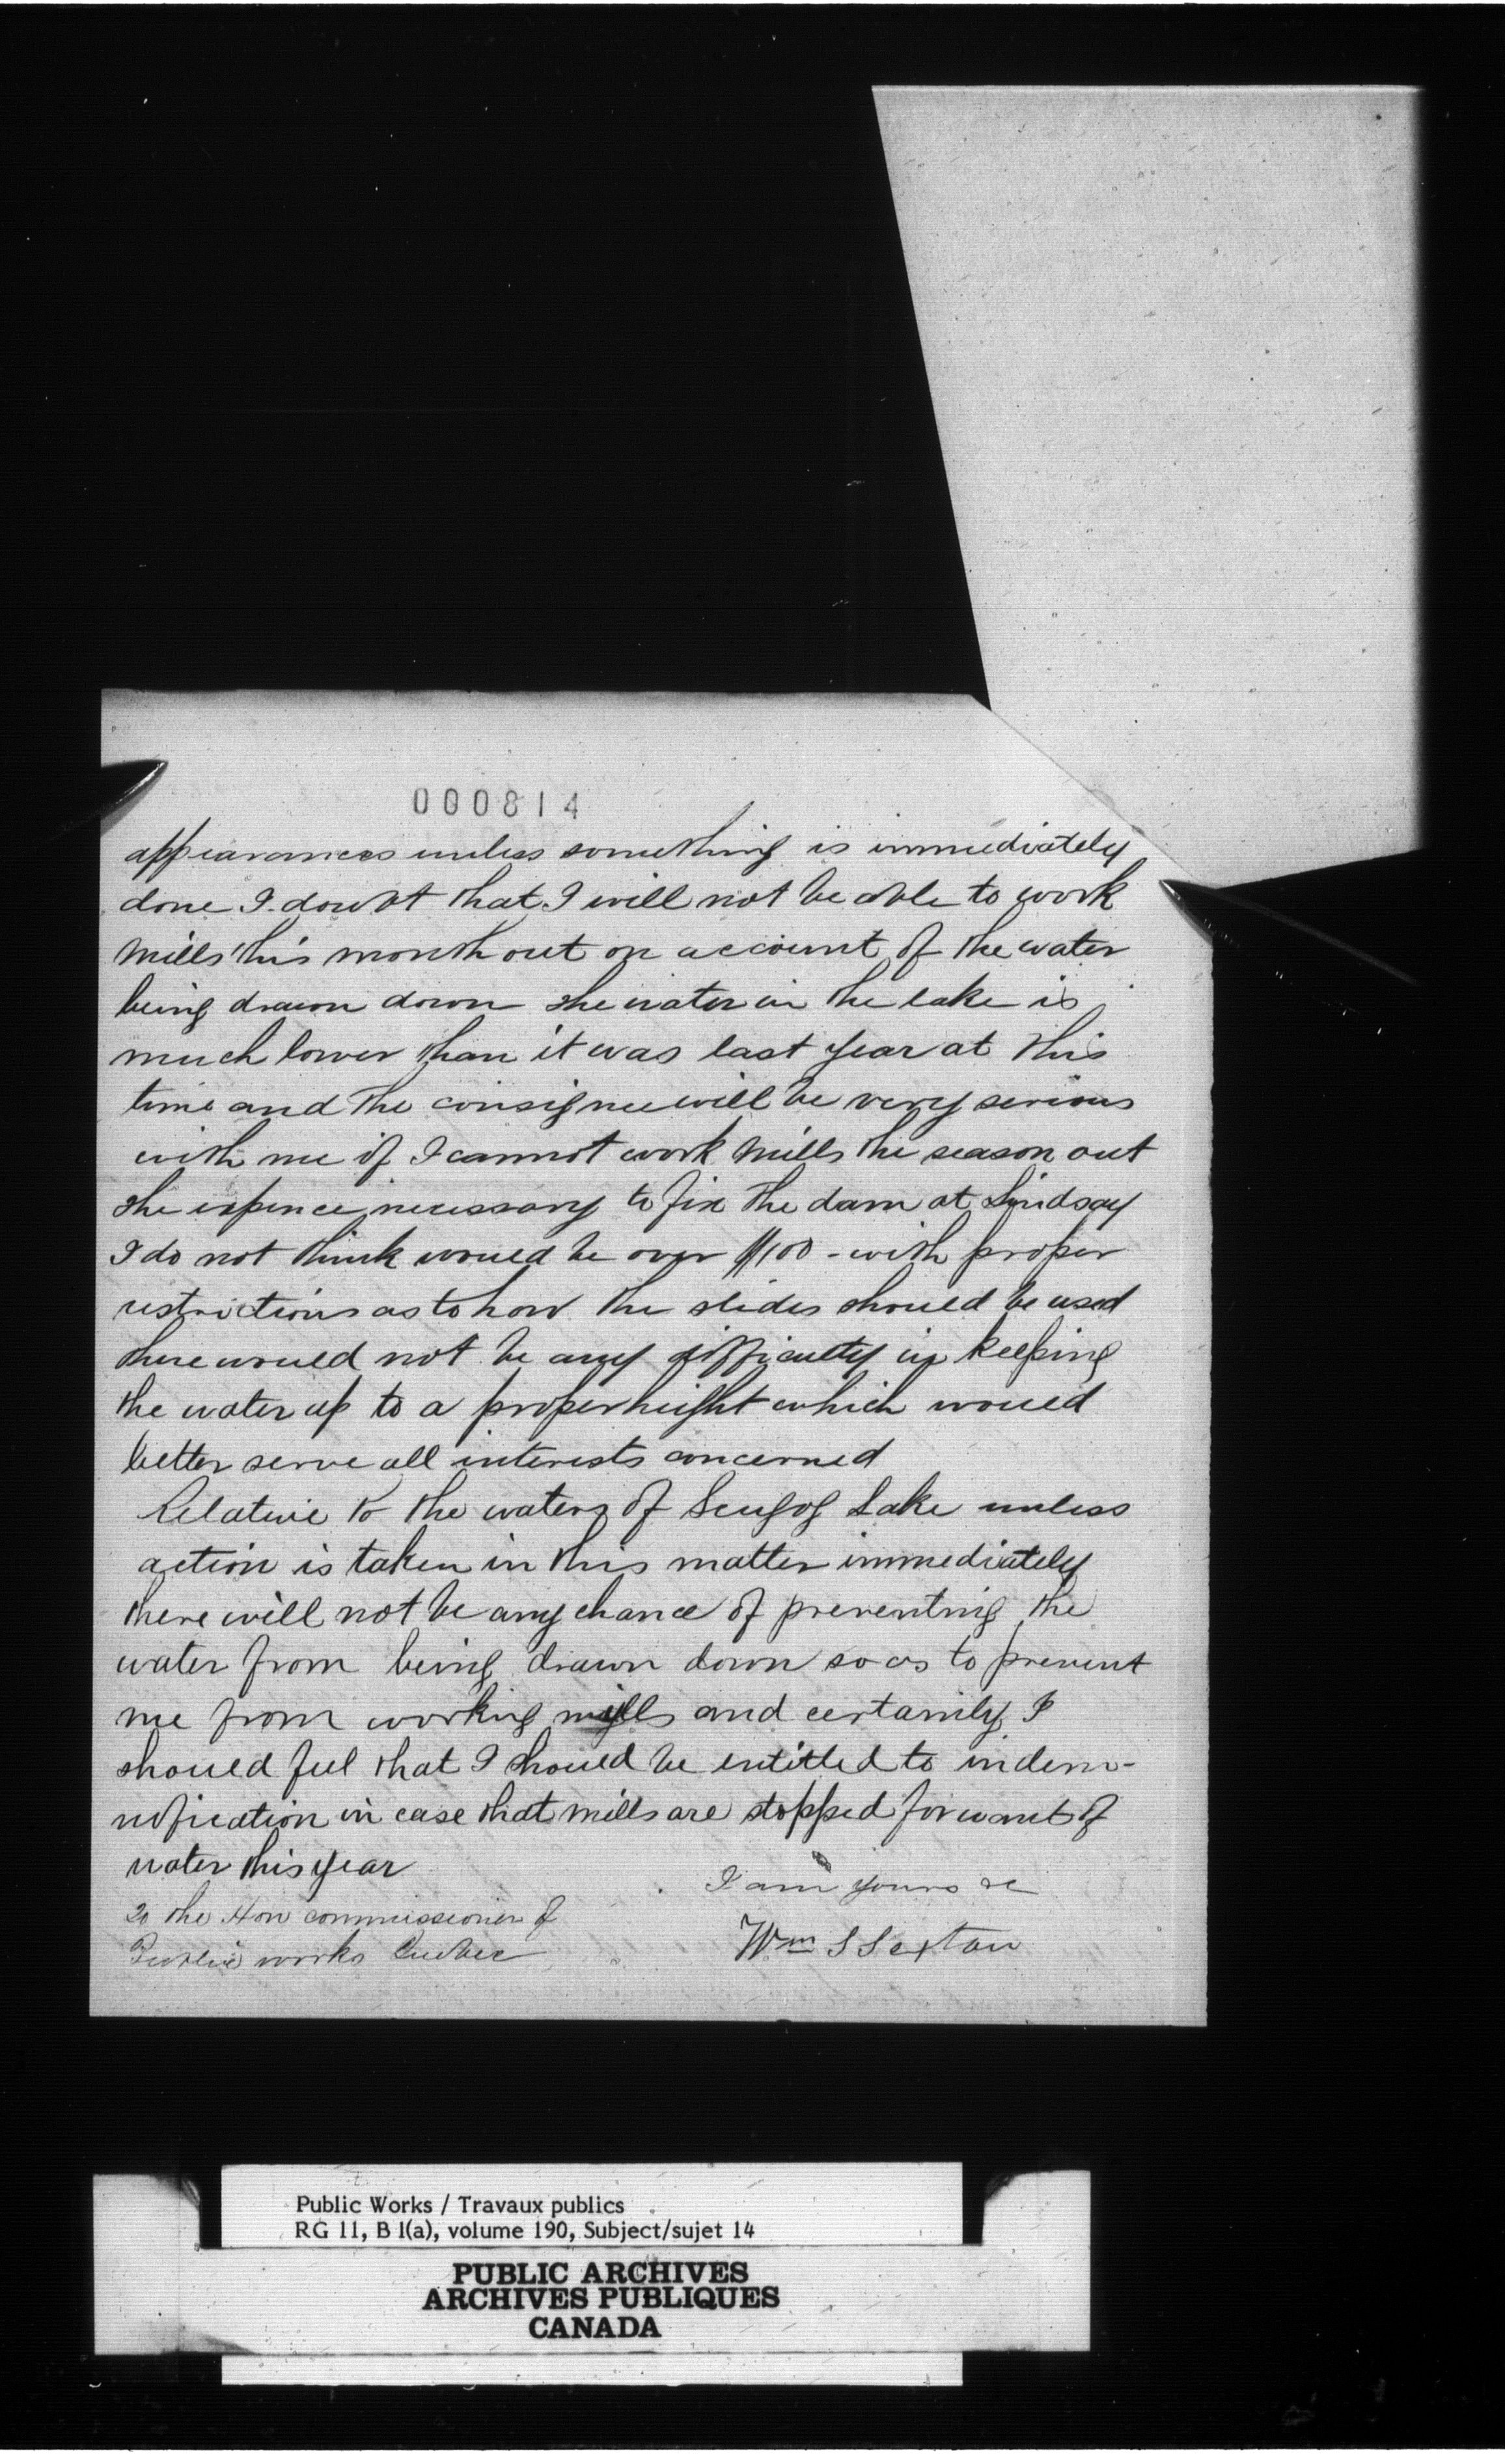 000814
appearances unless something is immediately
done I doubt that I will not be able to work
Mills this month out on account of the water
being drawn down the water in the lake is
much lower than it was last year at this
time and the will be very serious
with me if I cannot work Mills the season out
the expence necessary to fix the dam at Lindsay
I do not think would be over $100 - with proper
restrictions as to how the slides should be used
there would not be any difficulty in keeping
the water up to a proper height which would
better serve all interests concerned
Relative to the waters of Scugog Lake unless
action is taken in this matter immediately
there will not be any chance of preventing the
water from being drawn down so as to prevent
me from working mills and certainly I
should feel that I should be entitled to indem-
nification in case that mills are stopped for want of
water this year
I am yours &c
To the Hon commissioner of
Public works Quebec
Wm S Sexton
Public Works / Travaux publics
RG 11, B 1(a), volume 190, Subject/sujet 14
PUBLIC ARCHIVES
ARCHIVES PUBLIQUES
CANADA